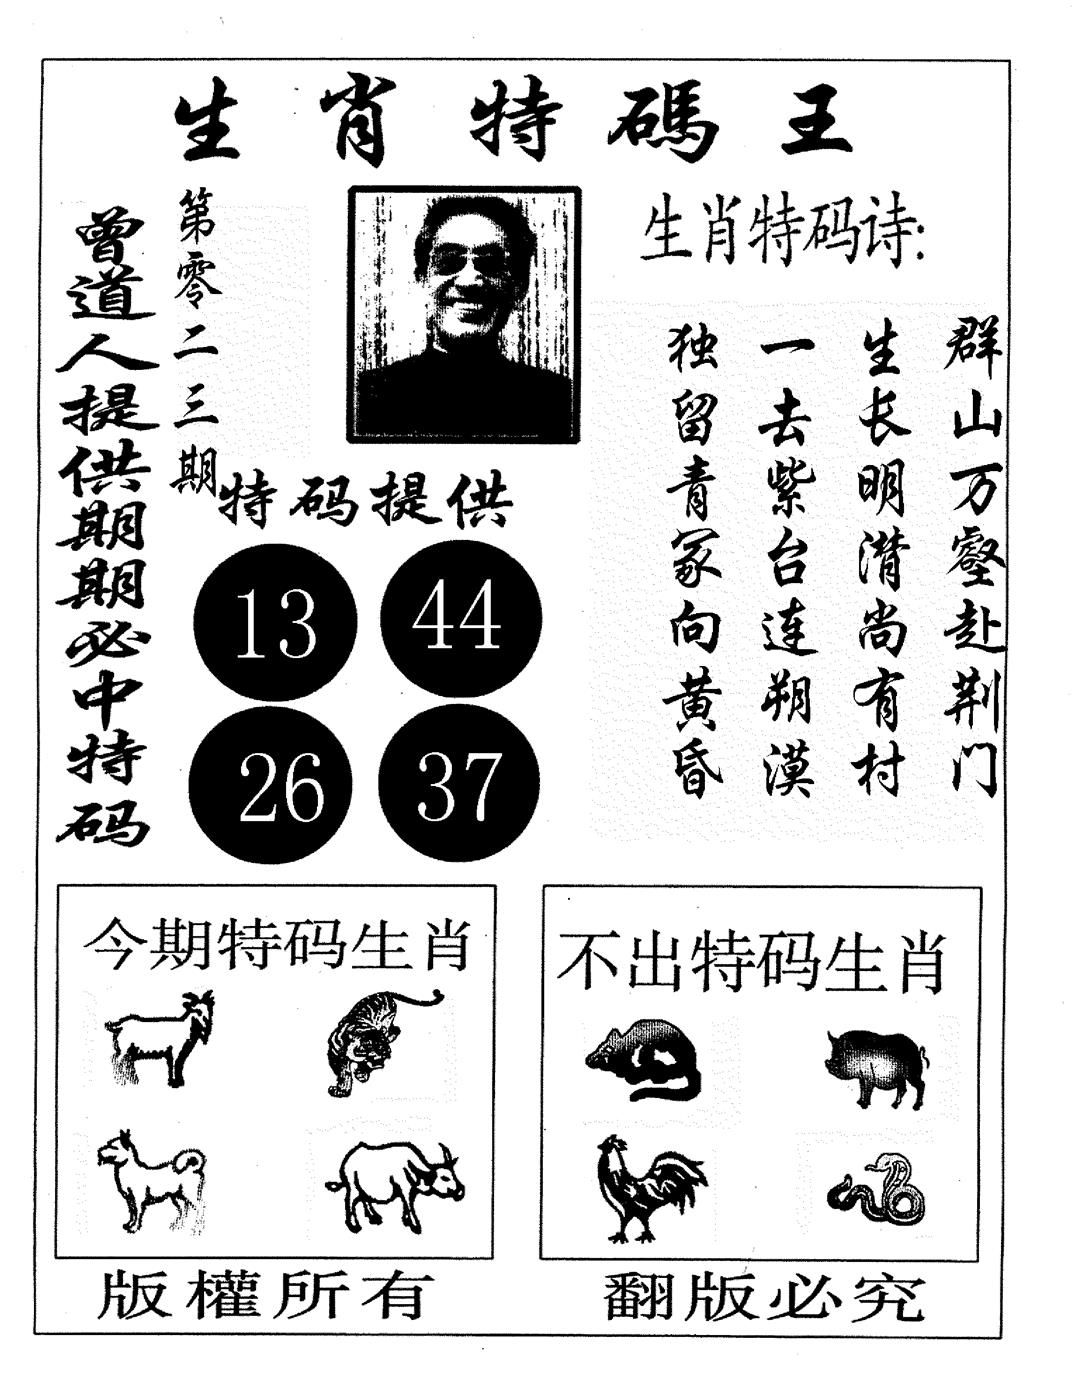 生肖特碼王
曾道人提供期期必中特码
第零二三期
特码提供
13
44
26
37
生肖特码诗:
群山万壑赴荆门
生长明潸尚有村
一去紫台连朔漠
独留青冢向黄昏
今期特码生肖
不出特码生肖
版權所有
翻版必究